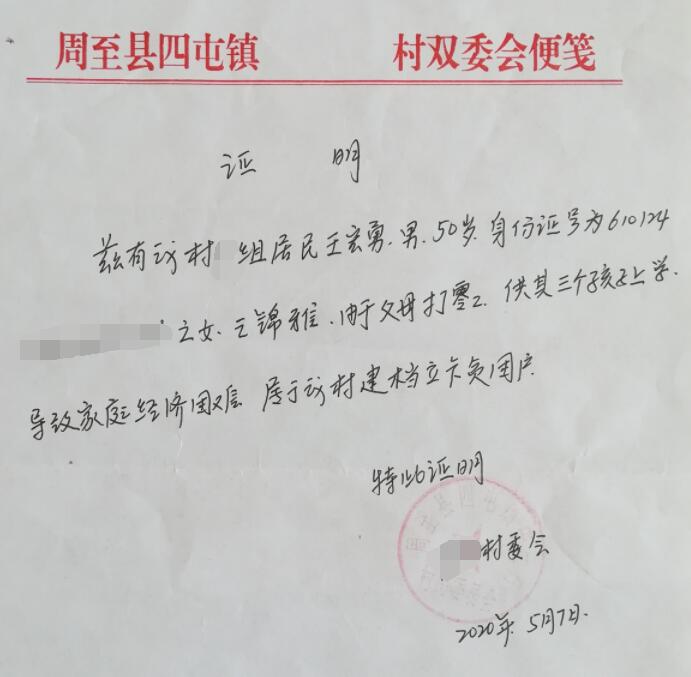 周至县四屯镇 村双委会便笺
证 明
兹有我村 组居民王宏勇.男.50岁.身份证号为610124
之女.王锦雅.由于父母打零工.供其三个孩子上学.
导致家庭经济困难 属于我村建档立卡贫困户.
特此证明
村委会
2020年.5月7日.
周至县四屯